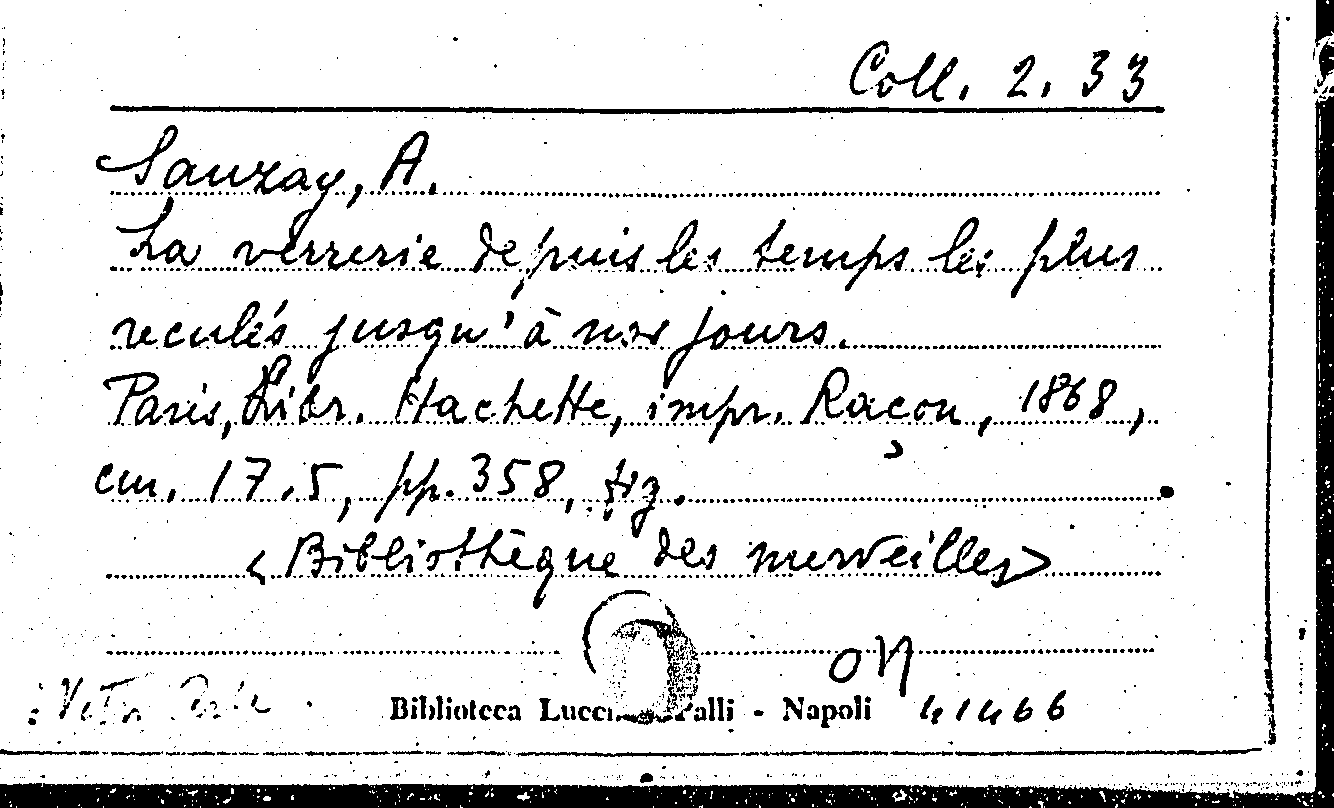 Coll. 2. 33
Sauzay, A.
La verrerie depuis les temps les plus
reculés jusqu'à nos jours.
Paris, Libr. Hachette, impr. Raçon, 1868,
cm. 17.5, pp. 358, fig.
<Bibliothèque des merveilles>
on
Biblioteca Lucc Palli - Napoli 41466